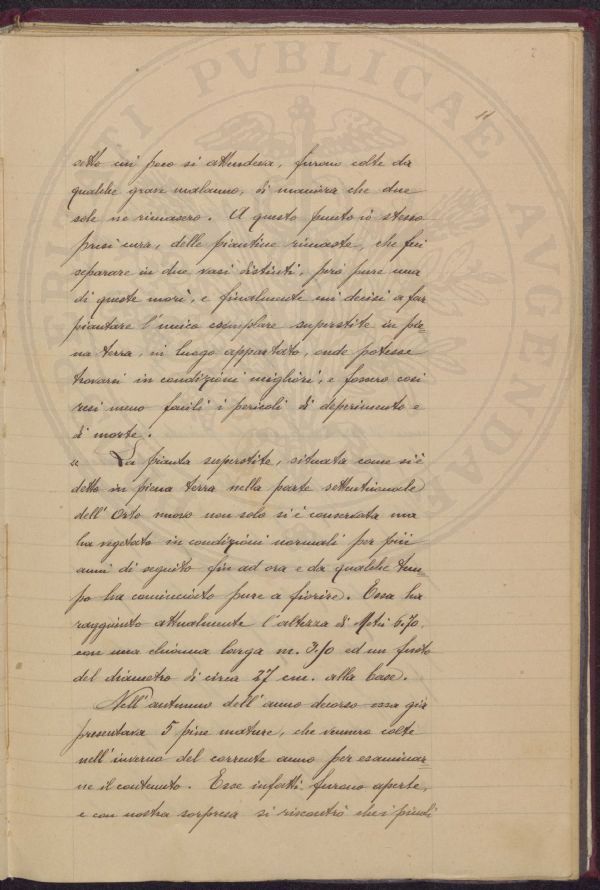 PERLITI PVBLICAE AVGENDAE
11
sotto cui poco si attendeva, furono colte da
qualche grave malanno, di maniera che due
sole ne rimasero. A questo punto io stesso
presi cura, delle piantine rimaste, che feci
separare in due vasi distinti, però pure una
di queste morì, e finalmente mi decisi a far
piantare l'unico esemplare superstite in pie=
na terra, in luogo appartato, onde potesse
trovarsi in condizioni migliori, e fossero così
resi meno facili i pericoli di deperimento e
di morte.
« La pianta superstite, situata come si è
detto in piena terra nella parte settentrionale
dell'Orto nuovo non solo si è conservata ma
ha vegetato in condizioni normali per più
anni di seguito fin ad ora e da qualche tem=
po ha cominciato pure a fiorire. Essa ha
raggiunto attualmente l'altezza di Metri 6.70,
con una chioma larga m. 3.70 ed un fusto
del diametro di circa 27 cm. alla base.
Nell'autunno dell'anno decorso essa già
presentava 5 pine mature, che vennero colte
nell'inverno del corrente anno per esaminar=
ne il contenuto. Esse infatti furono aperte,
e con nostra sorpresa si riscontrò che i pinoli